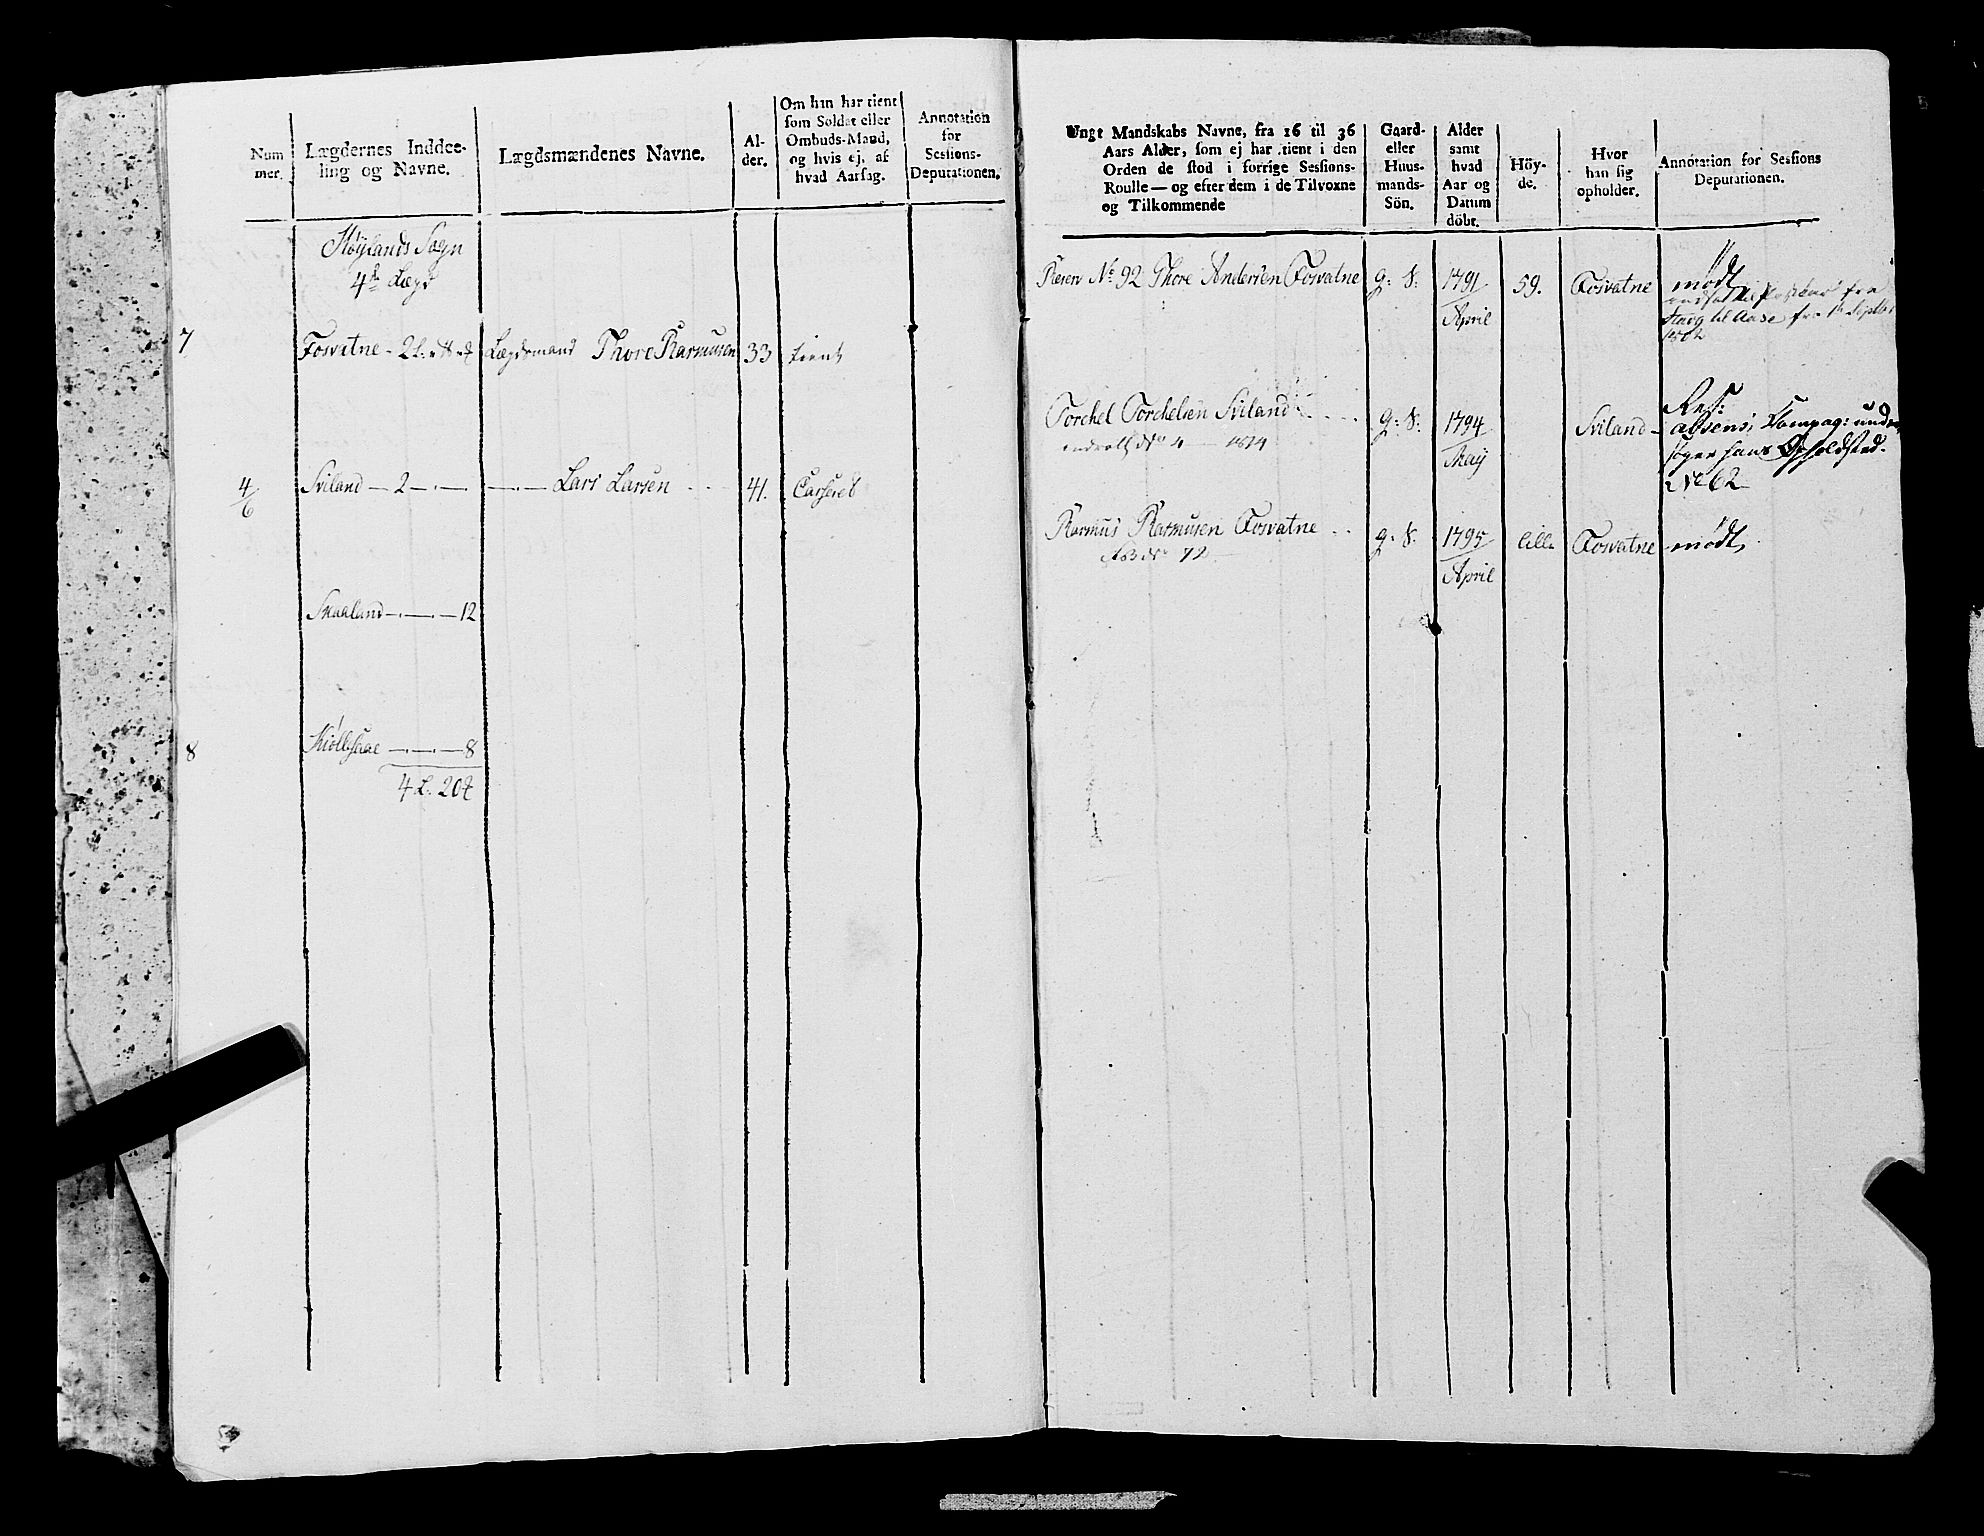 Num
mer.
Lægdernes Inddee-
ling og Navne.
Lægdsmændenes Navne.
Al-
der.
Om han har tient
som Soldat eller
Ombuds-Mand,
og hvis ej, af
hvad Aarsag.
Annotation
for
Sessions-
Deputationen.
Höylands Sogn
4de Lægd
7
Fosvatne - 2
Lægdsmand Thore Rasmusen
33
tient
4/6
Sviland - 2 - . -
Lars Larsen
41.
Casseret
Skaaland - . - . - 12
8
- . - . - 8
4 L. 20
Ungt Mandskabs Navne, fra 16 til 36
Aars Alder, som ej har tient i den
Orden de stod i forrige Sessions-
Roulle — og efter dem i de Tilvoxne
og Tilkommende
Gaard-
eller
Huus-
mands-
Sön.
Alder
samt
hvad
Aar og
Datum
döbt.
Höy-
de.
Hvor
han sig
opholder.
Annotation for Sessions
Deputationen.
Reserv No 92 Thore Andersen Fosvatne
g: S:
1791
April
59.
Fosvatne
mødt
til Aase fra
Torchel Torchelsen Sviland
g: S:
1794
May
Sviland
Res:
absens, Compag: under
søger hans Opholdsted.
No 62
1814
Rasmus Rasmusen Fosvatne
g: S:
1795
April
lille
Fosvatne
mødt
72